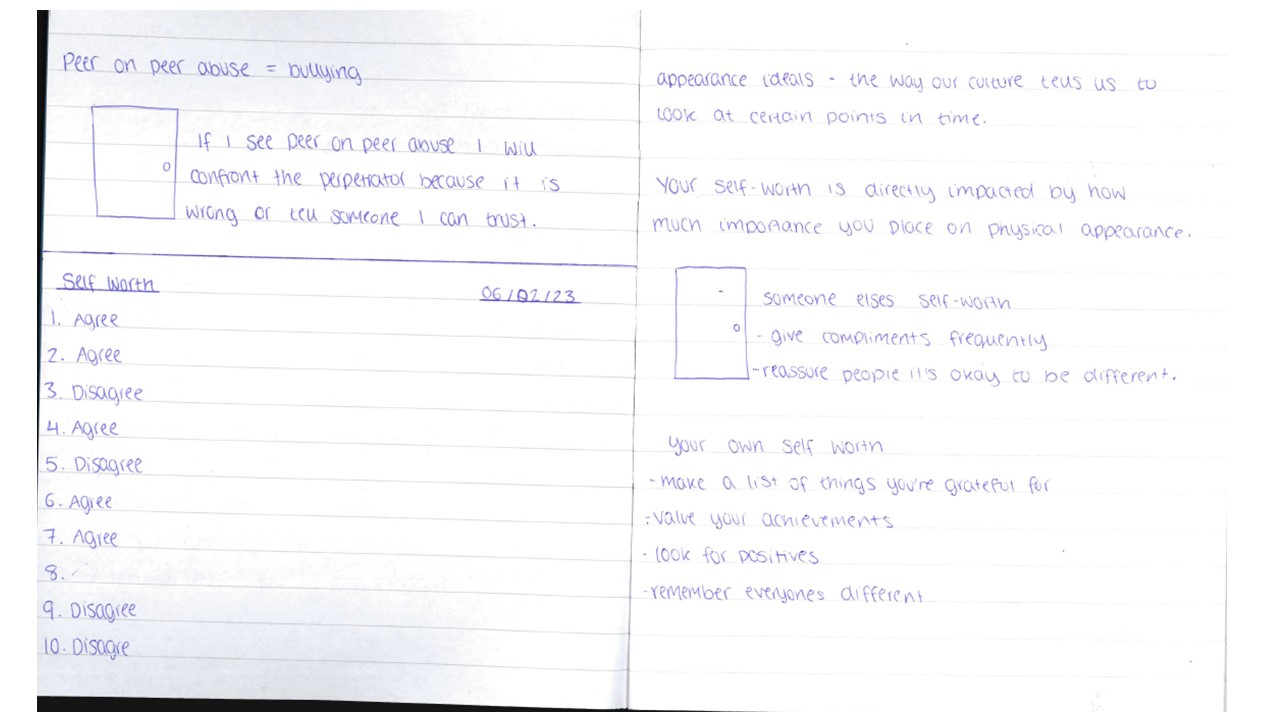 Peer on peer abuse = bullying
If I see peer on peer abuse I will
confront the perpetrator because it is
wrong or tell someone I can trust.
Self Worth
06/02/23
1. Agree
2. Agree
3. Disagree
4. Agree
5. Disagree
6. Agree
7. Agree
8.
9. Disagree
10. Disagre
appearance ideals - the way our culture tells us to
look at certain points in time.
Your self-worth is directly impacted by how
much importance you place on physical appearance.
someone elses self-worth
- give compliments frequently
- reassure people it's okay to be different.
your own self worth
- make a list of things you're grateful for
- value your achievements
- look for positives
- remember everyones different